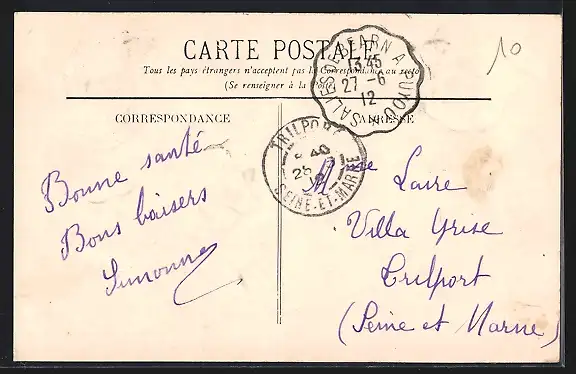 10
CARTE POSTALE
Tous les pays étrangers n'acceptent pas la Correspondance au recto
(Se renseigner à la Poste)
SALIES-DE-BEARN A PUYOO
13 45
27 - 6
12
CORRESPONDANCE
ADRESSE
TRILPORT
40
12
SEINE-ET-MARNE
Bonne santé
Bons baisers
Simonne
Mme Laire
Villa Grise
Trilport
(Seine et Marne)